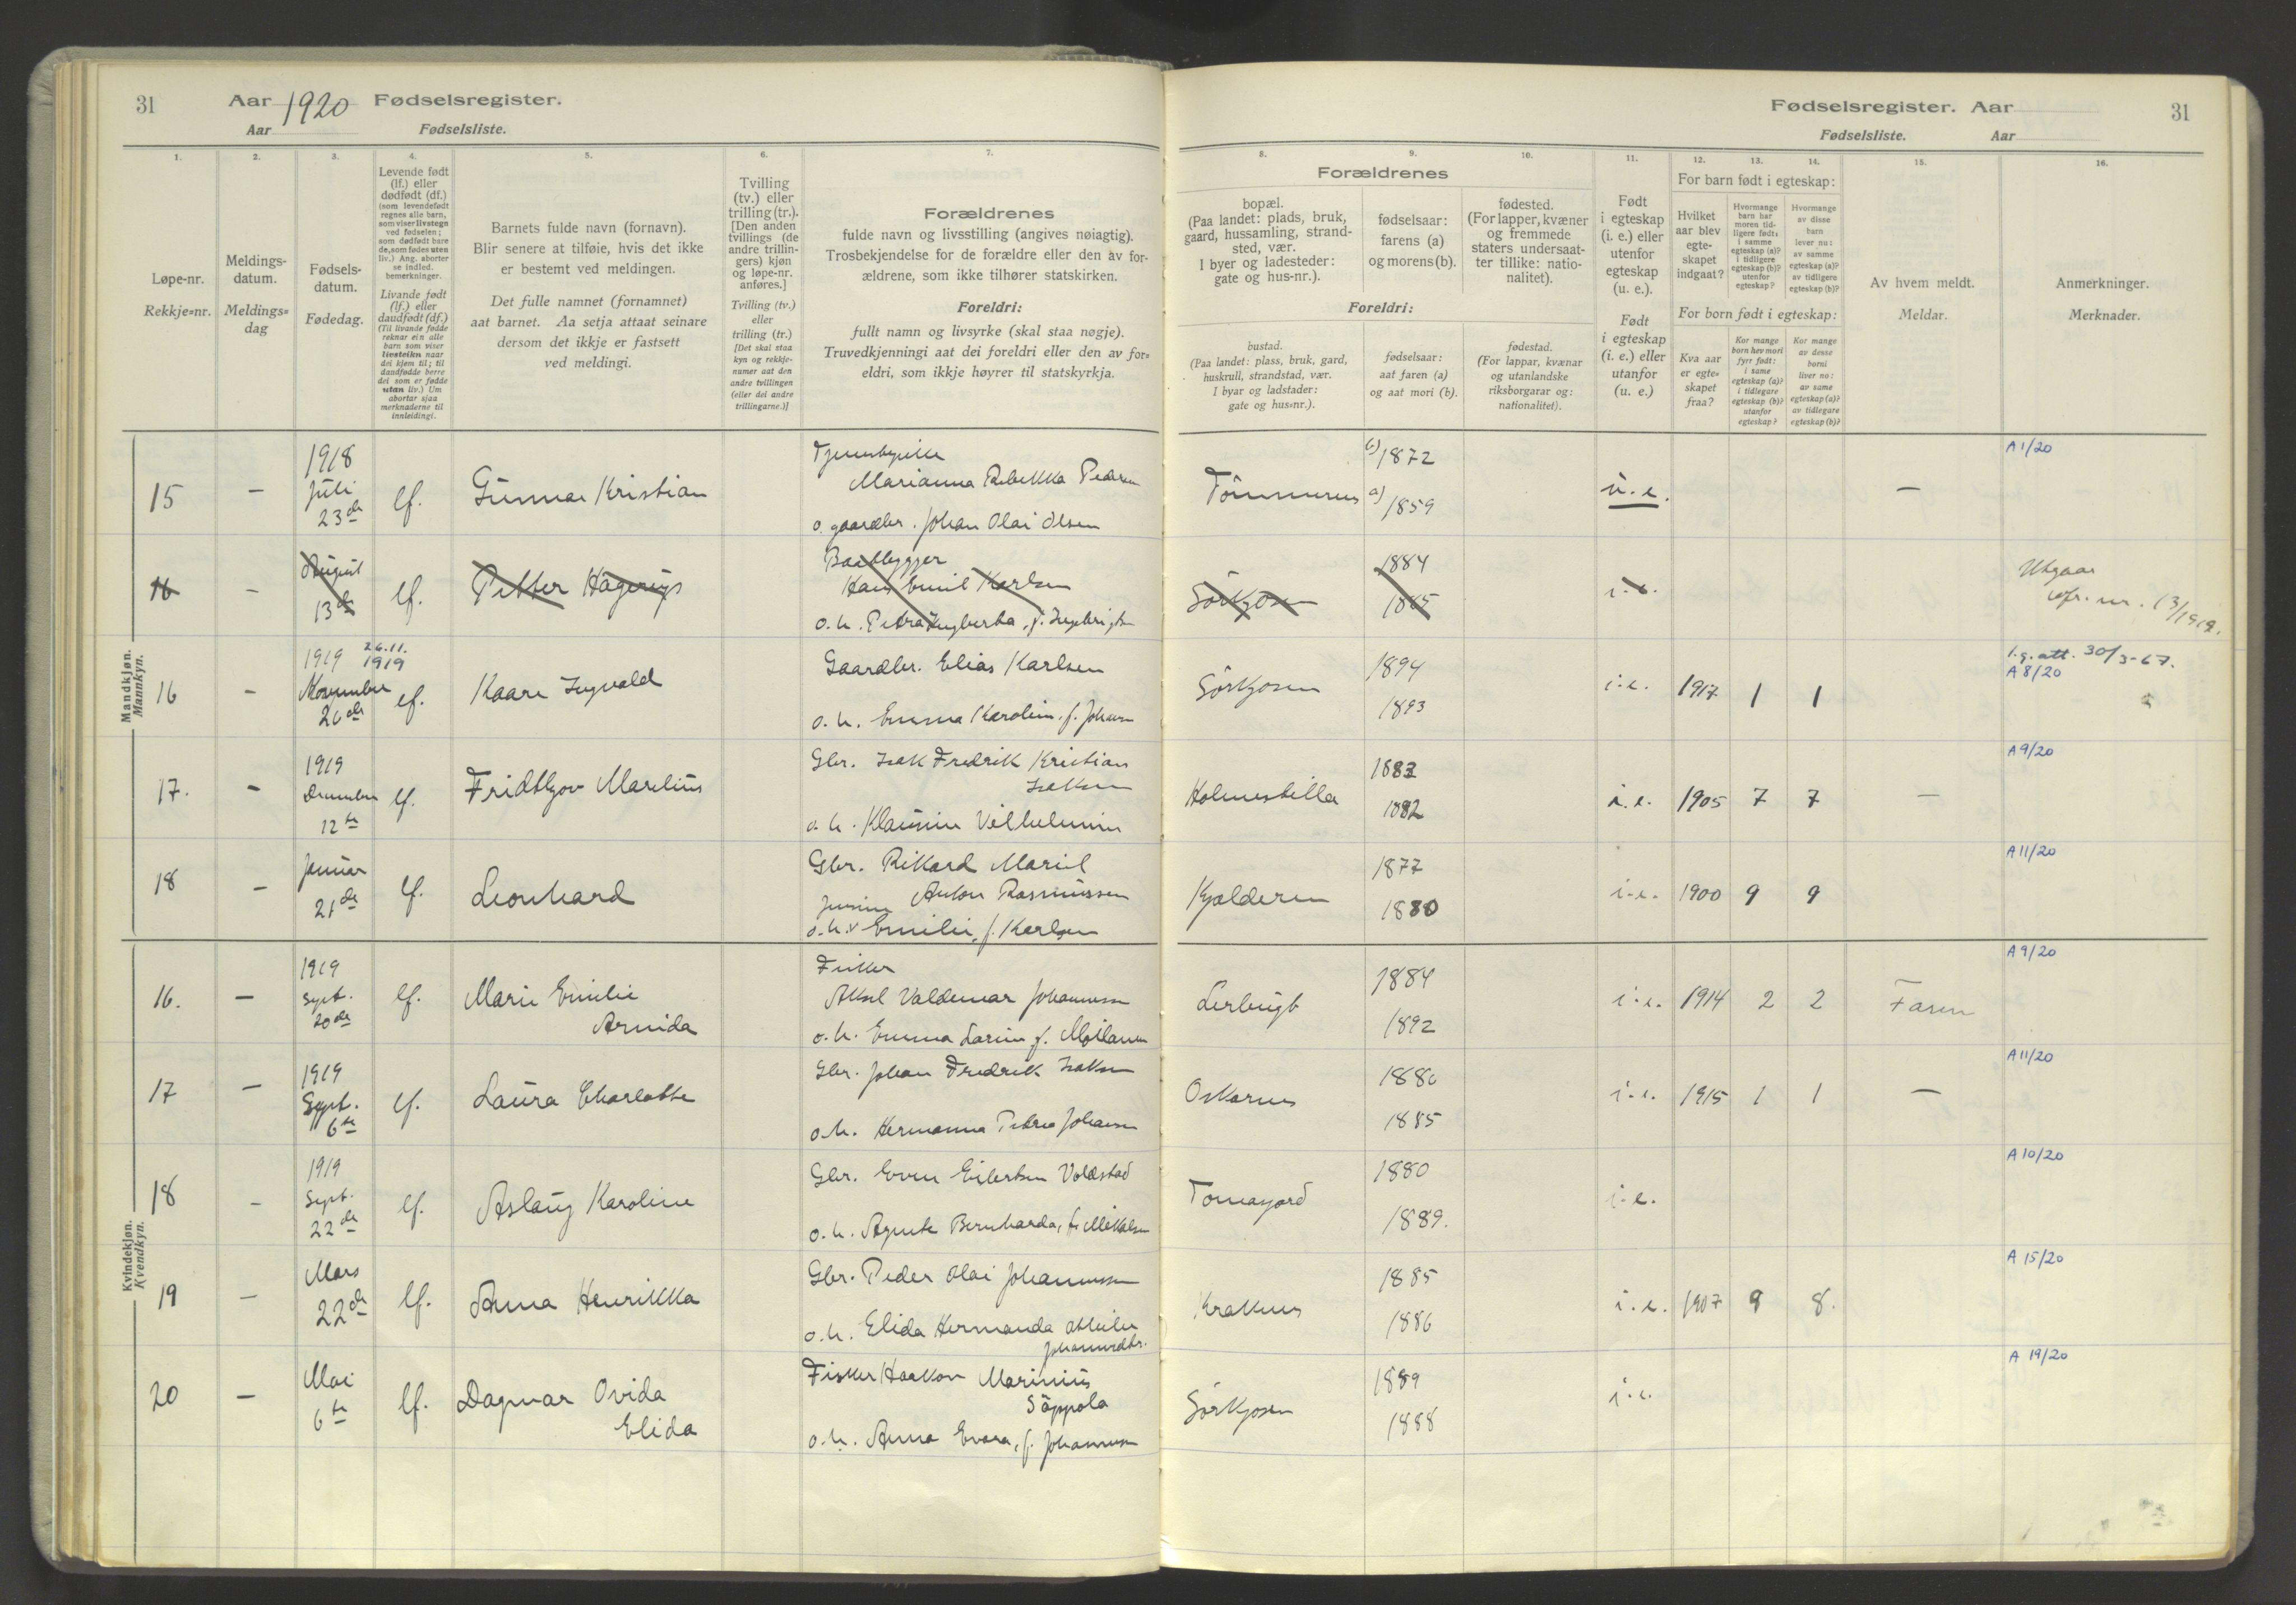 31 Aar 1920 Fødselsregister.
Aar Fødselsliste.
Fødselsregister. Aar 31
Fødselsliste. Aar
1. 2. 3. 4. 5. 6. 7.
Løpe-nr.
Rekkje=nr.
Meldings-
datum.
Meldings=
dag
Fødsels-
datum.
Fødedag.
Levende født
(lf.) eller
dødfødt (df.)
(som levendefødt
regnes alle barn,
som viser livstegn
ved fødselen;
som dødfødt bare
de, som fødes uten
liv.) Ang. aborter
se indled.
bemerkninger.
Livande født
(lf.) eller
daudfødt (df.)
(Til livande fødde
reknar ein alle
barn som viser
livsteikn naar
dei kjem til; til
daudfødde berre
dei som er fødde
utan liv.) Um
abortar sjaa
merknaderne til
innleidingi.
Barnets fulde navn (fornavn).
Blir senere at tilføie, hvis det ikke
er bestemt ved meldingen.
Det fulle namnet (fornamnet)
aat barnet. Aa setja attaat seinare
dersom det ikkje er fastsett
ved meldingi.
Tvilling
(tv.) eller
trilling (tr.).
[Den anden
tvillings (de
andre trillin-
gers) kjøn
og løpe-nr.
anføres.]
Tvilling (tv.)
eller
trilling (tr.)
[Det skal staa
kyn og rekkje-
numer aat den
andre tvillingen
(eller dei andre
trillingarne.)]
Forældrenes
fulde navn og livsstilling (angives nøiagtig).
Trosbekjendelse for de forældre eller den av for-
ældrene, som ikke tilhører statskirken.
Foreldri:
fullt namn og livsyrke (skal staa nøgje).
Truvedkjenningi aat dei foreldri eller den av for=
eldri, som ikkje høyrer til statskyrkja.
8. 9. 10. 11. 12. 13. 14. 15. 16.
Forældrenes
bopæl.
(Paa landet: plads, bruk,
gaard, hussamling, strand-
sted, vær.
I byer og ladesteder:
gate og hus-nr.).
fødselsaar:
farens (a)
og morens (b).
fødested.
(For lapper, kvæner
og fremmede
staters undersaat-
ter tillike: natio-
nalitet).
Foreldri:
bustad.
(Paa landet: plass, bruk, gard,
huskrull, strandstad, vær.
I byar og ladstader:
gate og hus=nr.).
fødselsaar:
aat faren (a)
og aat mori (b).
fødestad.
(For lappar, kvænar
og utanlandske
riksborgarar og:
nationalitet).
Født
i egteskap
(i. e.) eller
utenfor
egteskap
(u. e.).
Født
i egteskap
(i. e.) eller
utanfor
(u. e.)
For barn født i egteskap:
Hvilket
aar blev
egte-
skapet
indgaat?
Hvormange
barn har
moren tid-
ligere født:
i samme
egteskap (a)?
i tidligere
egteskap (b)?
utenfor
egteskap?
Hvormange
av disse
barn
lever nu:
av samme
egteskap (a)?
av tidligere
egteskap (b)?
For born født i egteskap:
Kva aar
er egte=
skapet
fraa?
Kor mange
born hev mori
fyrr født:
i same
egteskap (a)?
i tidlegare
egteskap (b)?
utanfor
egteskap?
Kor mange
av desse
borni
liver no:
av same
egteskap (a)?
av tidlegare
egteskap (b)?
Av hvem meldt.
Meldar.
Anmerkninger.
Merknader.
Mandkjøn.
Mannkyn.
15 – 1918
Juli
23de
lf. Gunnar Kristian
Marianna Rebekka
o. gaardbr. Johan Olai Olsen
b) 1872
a) 1859
u.e. –
A 1/20
16 – August
13de
lf. Petter Hagerup
Baatbygger
Hans Emil Karlsen
o. h. Petra Ingberta, f. Ingebrigtsen
Sörkjosen 1884
1885
i.e.
Utgaar
cfr. nr. 13/1919.
16 – 1919 26.11.
1919
November
26de
lf. Kaare Ingvald
Gaardbr. Elias Karlsen
o. h. Emma Karolin, f. Johansen
Sörkjosen 1894
1893
i.e. 1917 1 1
l.g. att. 30/3-67.
A 8/20
17. – 1919
Desember
12te
lf. Fridtjov Marelius
Gbr. Isak Fredrik Kristian
Isaksen
o. h.
Holmestilla 1883
1882
i.e. 1905 7 7 –
A 9/20
18 – Januar
21de
lf. Leonhard
Gbr. Rikard
Anton Rasmussen
o. h. Emilie, f. Karlsen
Kjælderen 1877
1880
i.e. 1900 9 9
A 11/20
Kvindekjøn.
Kvendkyn.
16. – 1919
Sept.
20de
lf. Marie Emilie
Armida
Fisker
Aksel Valdemar Johannessen
o. h. Emma
Lerbugt 1884
1892
i.e. 1914 2 2 Faren
A 9/20
17 – 1919
Sept.
6te
lf. Laura Charlotte
Gbr. Johan Fredrik Isaksen
o. h. Hermanna Petrea Johansen
1886
1885
i.e. 1915 1 1 –
A 11/20
18 – 1919
Sept.
22de
lf. Aslaug Karoline
Gbr. Even Eilertsen Voldstad
o. h. Agnete Bernharda, f. Mikalsen
Tomasjord 1880
1889.
i.e.
A 10/20
19 – Mars
22de
lf. Anna Henrikka
Gbr. Peder Olai Johannessen
o. h. Elida Hermanda
Kraknes 1885
1886
i.e. 1907 9 8.
A 15/20
20 – Mai
6te
lf. Dagmar Ovida
Elida
Fisker Haakon Marinius
Säppola
o. h. Anna Evara, f. Johannessen
Sörkjosen 1889
1888
i.e.
A 19/20